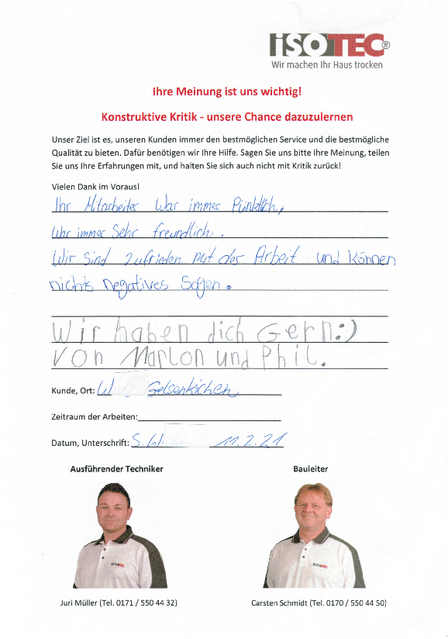 iSOTEC®
Wir machen Ihr Haus trocken
Ihre Meinung ist uns wichtig!
Konstruktive Kritik - unsere Chance dazuzulernen
Unser Ziel ist es, unseren Kunden immer den bestmöglichen Service und die bestmögliche
Qualität zu bieten. Dafür benötigen wir Ihre Hilfe. Sagen Sie uns bitte Ihre Meinung, teilen
Sie uns Ihre Erfahrungen mit, und halten Sie sich auch nicht mit Kritik zurück!
Vielen Dank im Voraus!
Ihr Mitarbeiter War immer Pünktlich,
War immer Sehr freundlich.
Wir Sind zufrieden mit der Arbeit und Können
nichts negatives Sagen.
Wir haben dich Gern:)
Von Marlon und Phil.
Kunde, Ort: W Gelsenkirchen
Zeitraum der Arbeiten:
Datum, Unterschrift: S. W 11.2.21
Ausführender Techniker Bauleiter
Juri Müller (Tel. 0171 / 550 44 32) Carsten Schmidt (Tel. 0170 / 550 44 50)